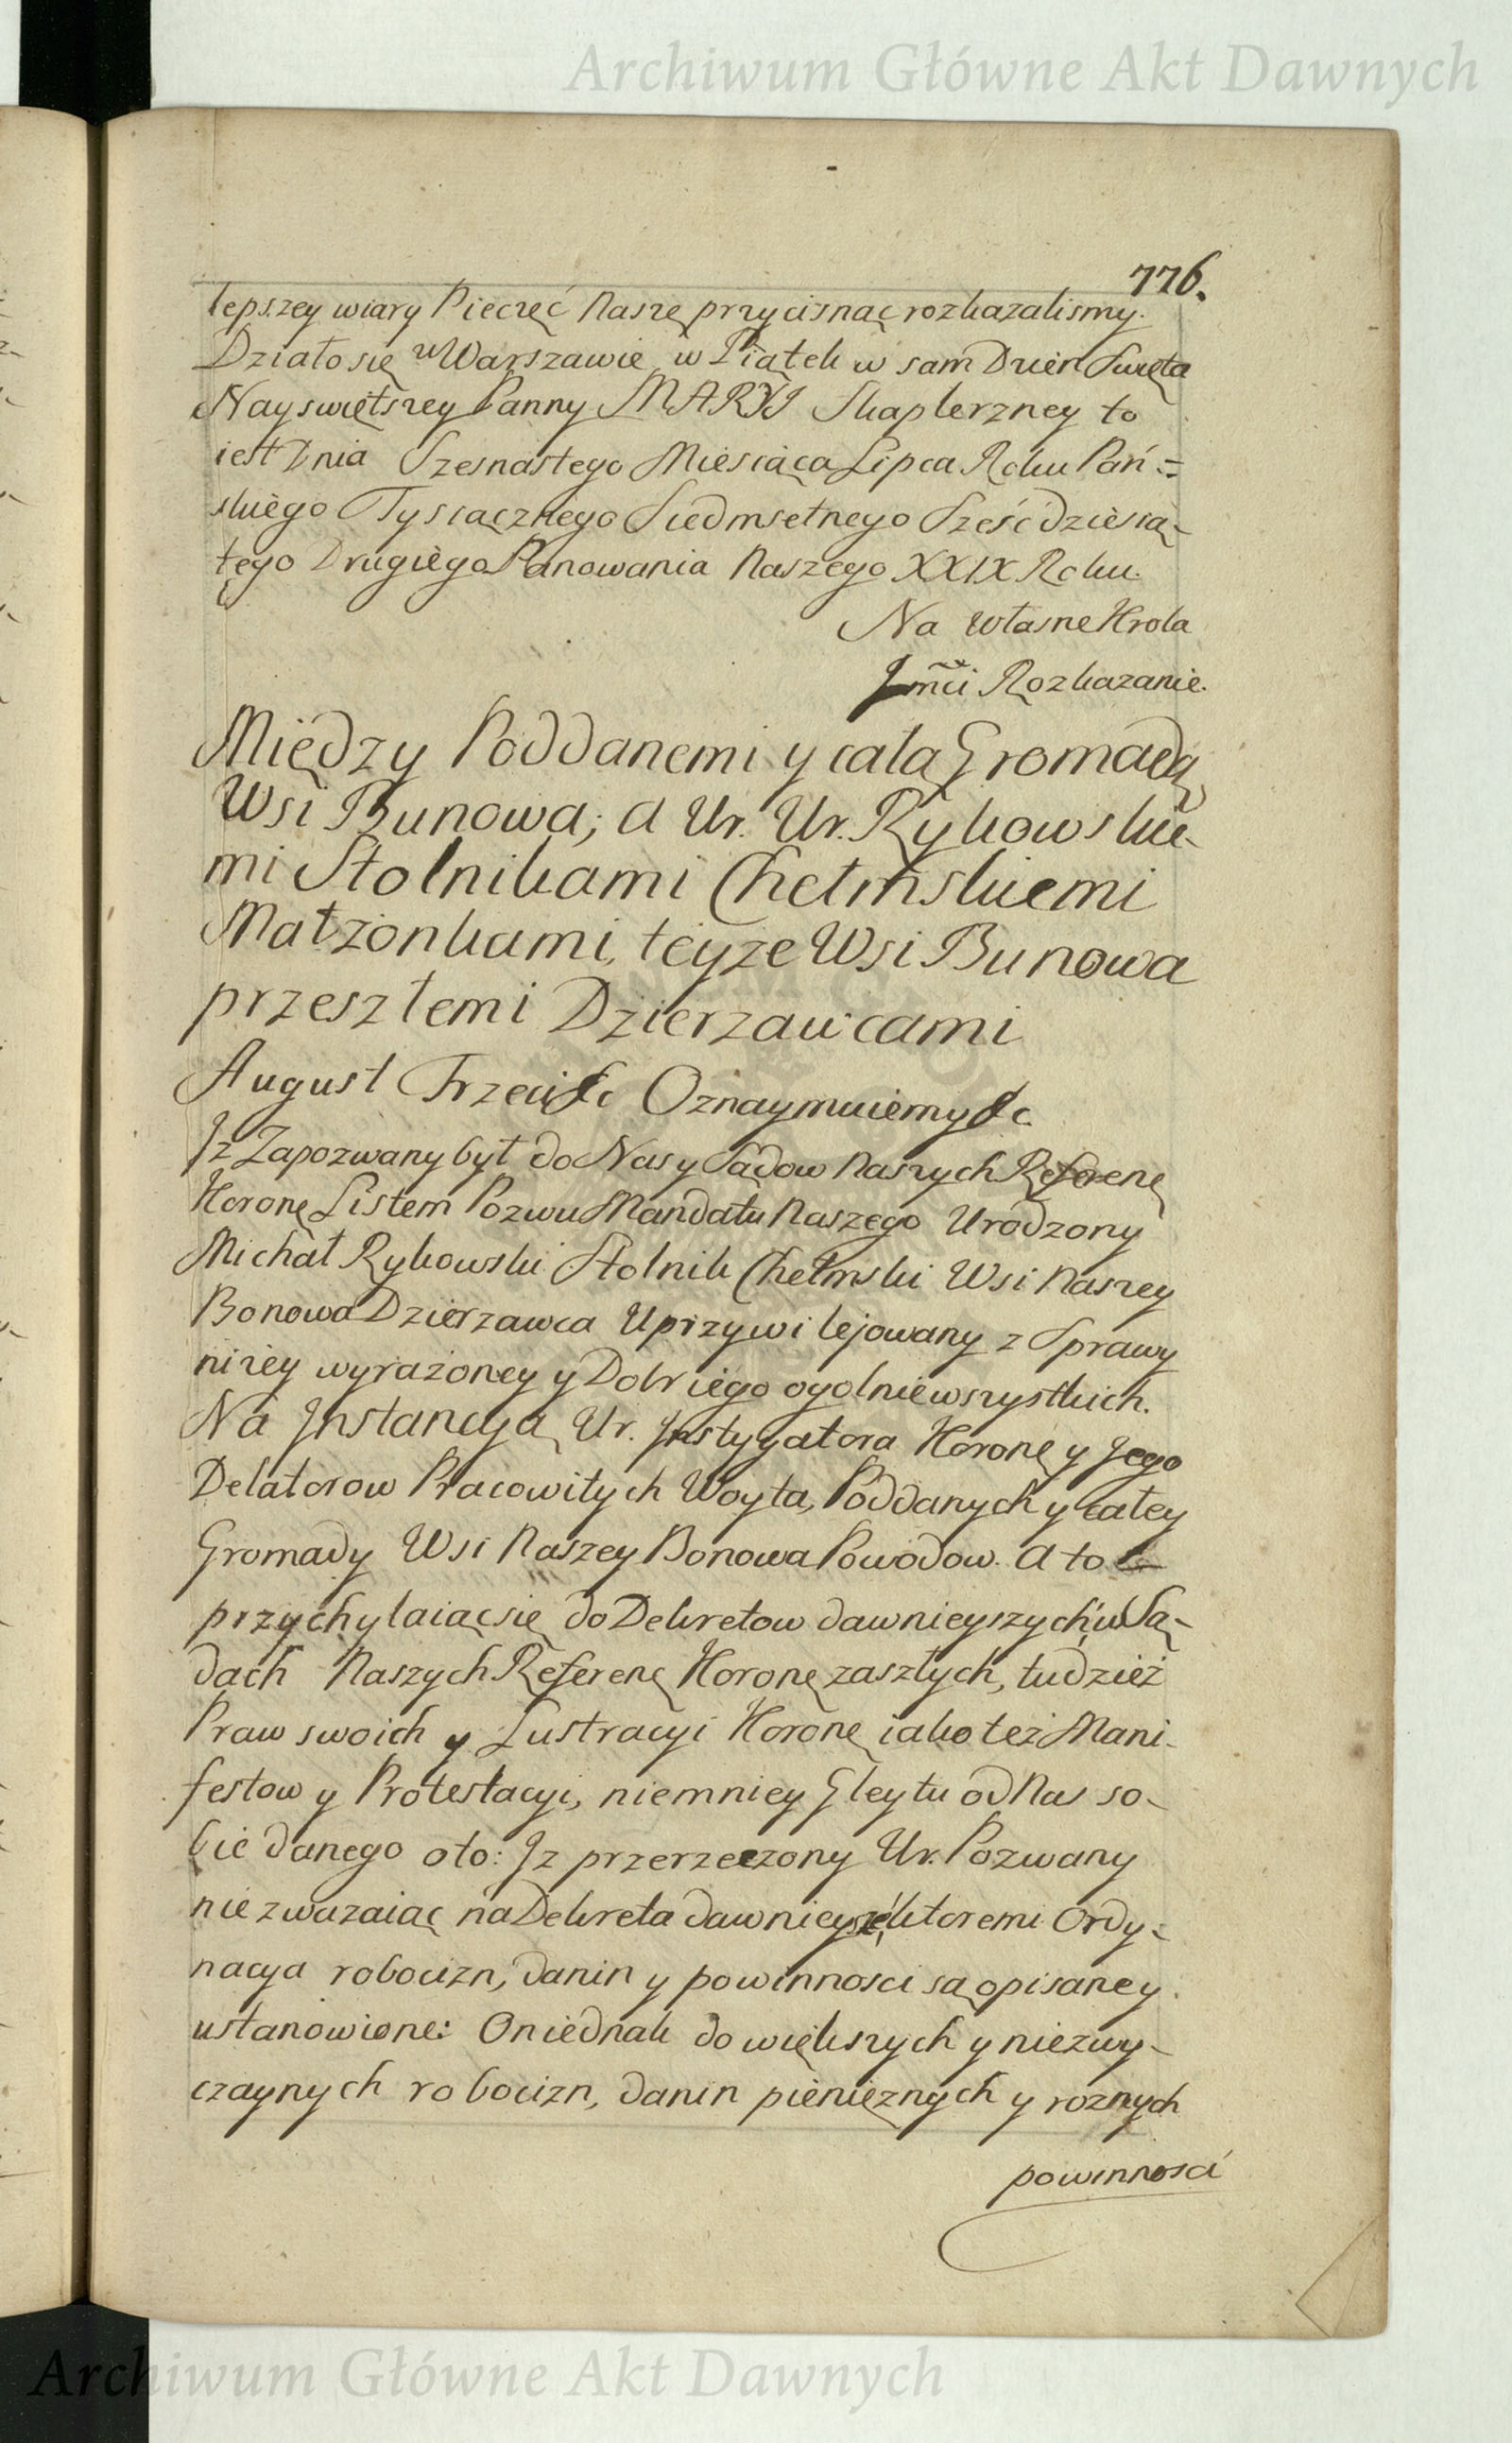 Archiwum Główne Akt Dawnych
776.
lepszey wiary Pieczęć Naszę przycisnąc rozkazalismy.
Działo się w Warszawie w Piątek w sam Dzień Swięta
Nayswiętszey Panny MARYI Szkaplerzney to
iest Dnia Szesnastego Miesiąca Lipca Roku Pań=
skiego Tysiącznego Siedmsetnego Sześćdziesią-
tego Drugiego Panowania Naszego XXIX Roku.
Na własne Krola
Jmći Rozkazanie.
Między Poddanemi y całą Gromadą
Wsi Bunowa, a Ur. Ur. Rykowskie-
mi Stolnikami Chełmskiemi
Małżonkami, teyze Wsi Bunowa
przeszłemi Dzierzawcami
August Trzeci &c Oznaymuiemy &c.
Jż Zapozwany był do Nas y Sądow Naszych Referenc
Koronę Listem Pozwu Mandatu Naszego Urodzony
Michał Rykowski Stolnik Chełmski Wsi Naszey
Bonowa Dzierzawca Uprzywilejowany z Sprawy
niżey wyrażoney y Dobr iego ogolnie wszystkich.
Na Jnstancyą Ur. Jnstygatora Koronę y Jego
Delatorow Pracowitych Woyta, Poddanych y całey
Gromady Wsi Naszey Bonowa Powodow. A to
przychylaiąc się do Dekretow dawnieyszych w Są-
dach Naszych Referenę Koronę zaszłych, tudzież
Praw swoich y Lustracyi Koronę iako też Mani-
festow y Protestacyi, niemniey Gleytu od Nas so-
bie danego oto: Jz przerzeczony Ur. Pozwany
nie zwazaiąc na Dekreta dawnieysze, ktoremi Ordy-
nacya robocizn, danin y powinnosci są opisane y
ustanowione: On iednak do większych y niezwy-
czaynych robocizn, danin pieniężnych y roznych
powinności
Archiwum Główne Akt Dawnych